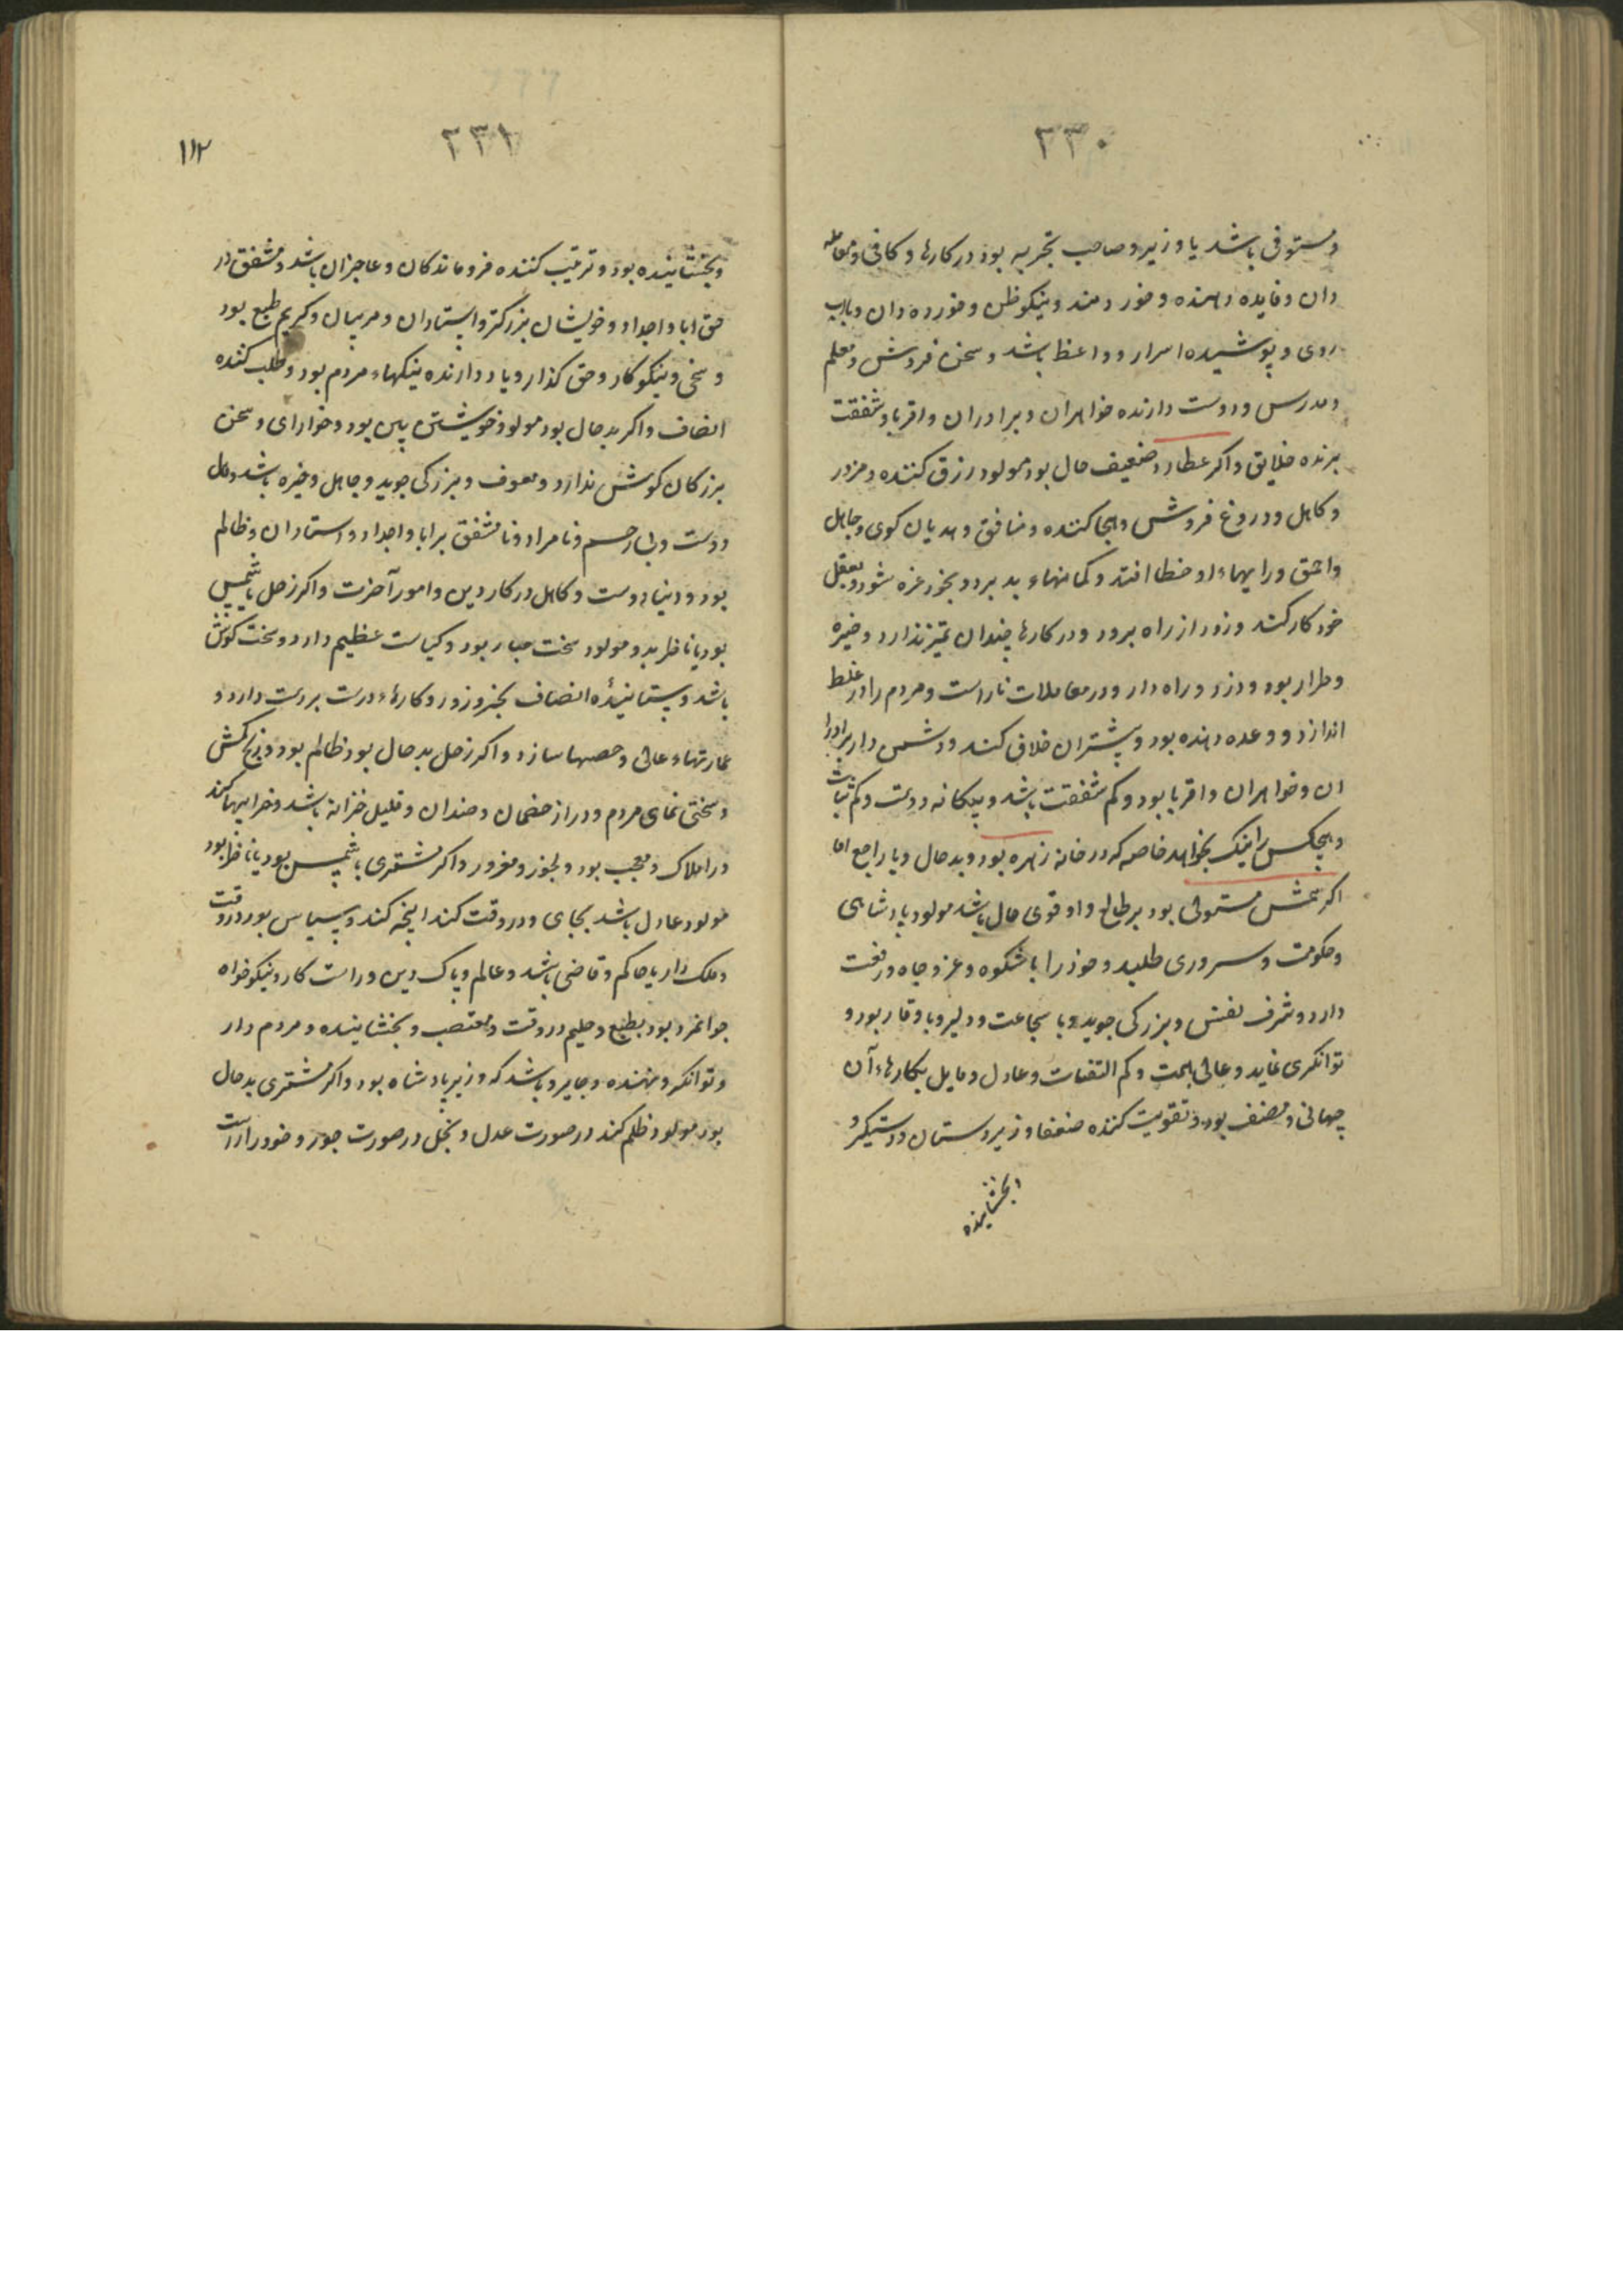 ٢٣٠
ومستوفی باشد یا وزیر و صاحب تجربه بود در کارها و کافی و معامله
دان و فایده دهنده و خردمند و نیکو ظن و خورده دان و باب
روی و پوشیده اسرار و واعظ باشد و سخن فروش و معلم
و مدرس و دوست دارنده خواهران و برادران و اقربا و شفقت
برنده خلایق و اکر عطارد ضعیف حال بود مولود رزق کننده و مزور
و کاهل و دروغ فروش و هجا کننده و منافق و هدیان کوی و جاهل
و احمق و رایهاء او خطا افتد و کمانهاء بد برد و بخود غره شود و بعقل
خود کار کند و زود از راه برود و در کارها چندان تمیز ندارد و خیره
و طرار بود و دزد و راه دار و در معاملات ناراست و مردم را در غلط
اندازد و وعده دهنده بود و بیشتران خلاف کند و دشمن دار برادرا
ان و خواهران و اقربا بود و کم شفقت باشد و بیکانه دوست و کم ثبات
و هیچکس را نیک نخواهد خاصه که در خانه زهره بود و بدحال و یا راجع اما
اکر شمس مستولی بود بر طالع و او قوی حال باشد مولود پادشاهی
و حکومت و سروری طلبد و خود را با شکوه و عز و جاه و رفعت
دارد و شرف نفس و بزرکی جوید و با شجاعت و دلیر و با وقار بود و
توانکری نماید و عالی همت و کم التفات و عادل و مایل بکارهاء آن
جهانی و مصنف بود و تقویت کننده ضعفا و زیردستان و دستیکر و
و بخشاینده
٢٣١
١١٢
و بخشاینده بود و تربیت کننده فروماندکان و عاجزان باشد و مشفق در
حق ابا و اجداد و خویشان بزرکتر و استادان و مربیان و کریم طبع بود
و سخی و نیکو کار و حق کذار و یاد دارنده نیکیهاء مردم بود و طلب کننده
انصاف و اکر بدحال بود مولود خویشتن بین بود و خود رای و سخن
بزرکان کوش ندارد و معوف و بزرکی جوید و جاهل و خیره باشد و مال
دوست و بی رحم و نامراد و نامشفق بر ابا و اجداد و استادان و ظالم
بود و دنیا دوست و کاهل در کار دین و امور آخرت و اکر زحل با شمس
بود یا ناظر بدو مولود سخت جبار بود و کیاست عظیم دارد و سخت کوش
باشد و ستانندۀ انصاف بجبر و زور و کارهاء درست بردست دارد و
عمارتهاء عالی و حصنها سازد و اکر زحل بدحال بود ظالم بود و رنج کش
و سختی نمای مردم و دراز خصمان و ضدان و قلیل خزانه باشد و خرابیها کند
در املاک و معجب بود و بخود و مغرور و اکر مشتری با شمس بود یا ناظر بود
مولود عادل باشد بجای و در وقت کند انچه کند و سپاس بود در وقت
و ملک دار یا حاکم و قاضی باشد و عالم و پاک دین و راست کار و نیکو خواه
جوانمرد بود بطبع و حلیم در وقت و معتصب و بخشاینده و مردم دار
و توانکر و نهنده و جابر و باشد که وزیر پادشاه بود و اکر مشتری بدحال
بود مولود ظلم کند در صورت عدل و بخل در صورت جود و خود را راست